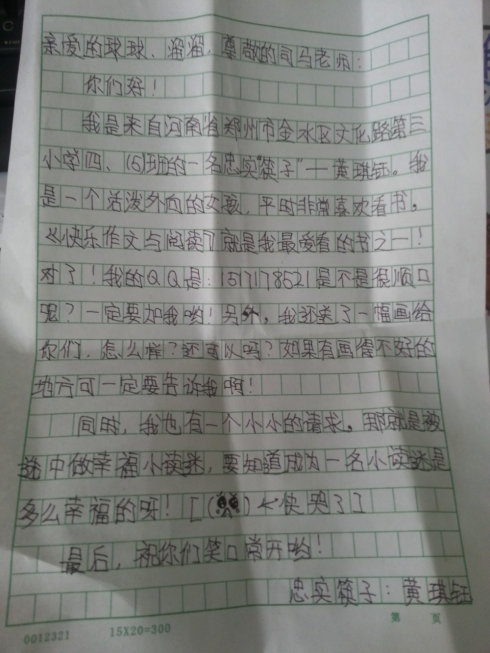 亲爱的球球、溜溜，尊敬的司马老师：
你们好！
我是来自河南省郑州市金水区文化路第三
小学四、(6)班的一名忠实“筷子”一黄琪钰。我
是一个活泼外向的女孩，平时非常喜欢看书。
《快乐作文与阅读》就是我最爱看的书之一！
对了！我的QQ是：1517178521是不是很顺口
呢？一定要加我哟！另外，我还画了一幅画给
你们，怎么样？还可以吗？如果有画得不好的
地方可一定要告诉我啊！
同时，我也有一个小小的请求。那就是被
选中做幸福小读迷，要知道成为一名小读迷是
多么幸福的呀！[( )←快哭了]
最后，祝你们笑口常开哟！
忠实筷子：黄琪钰
0012321 15X20=300 第 页